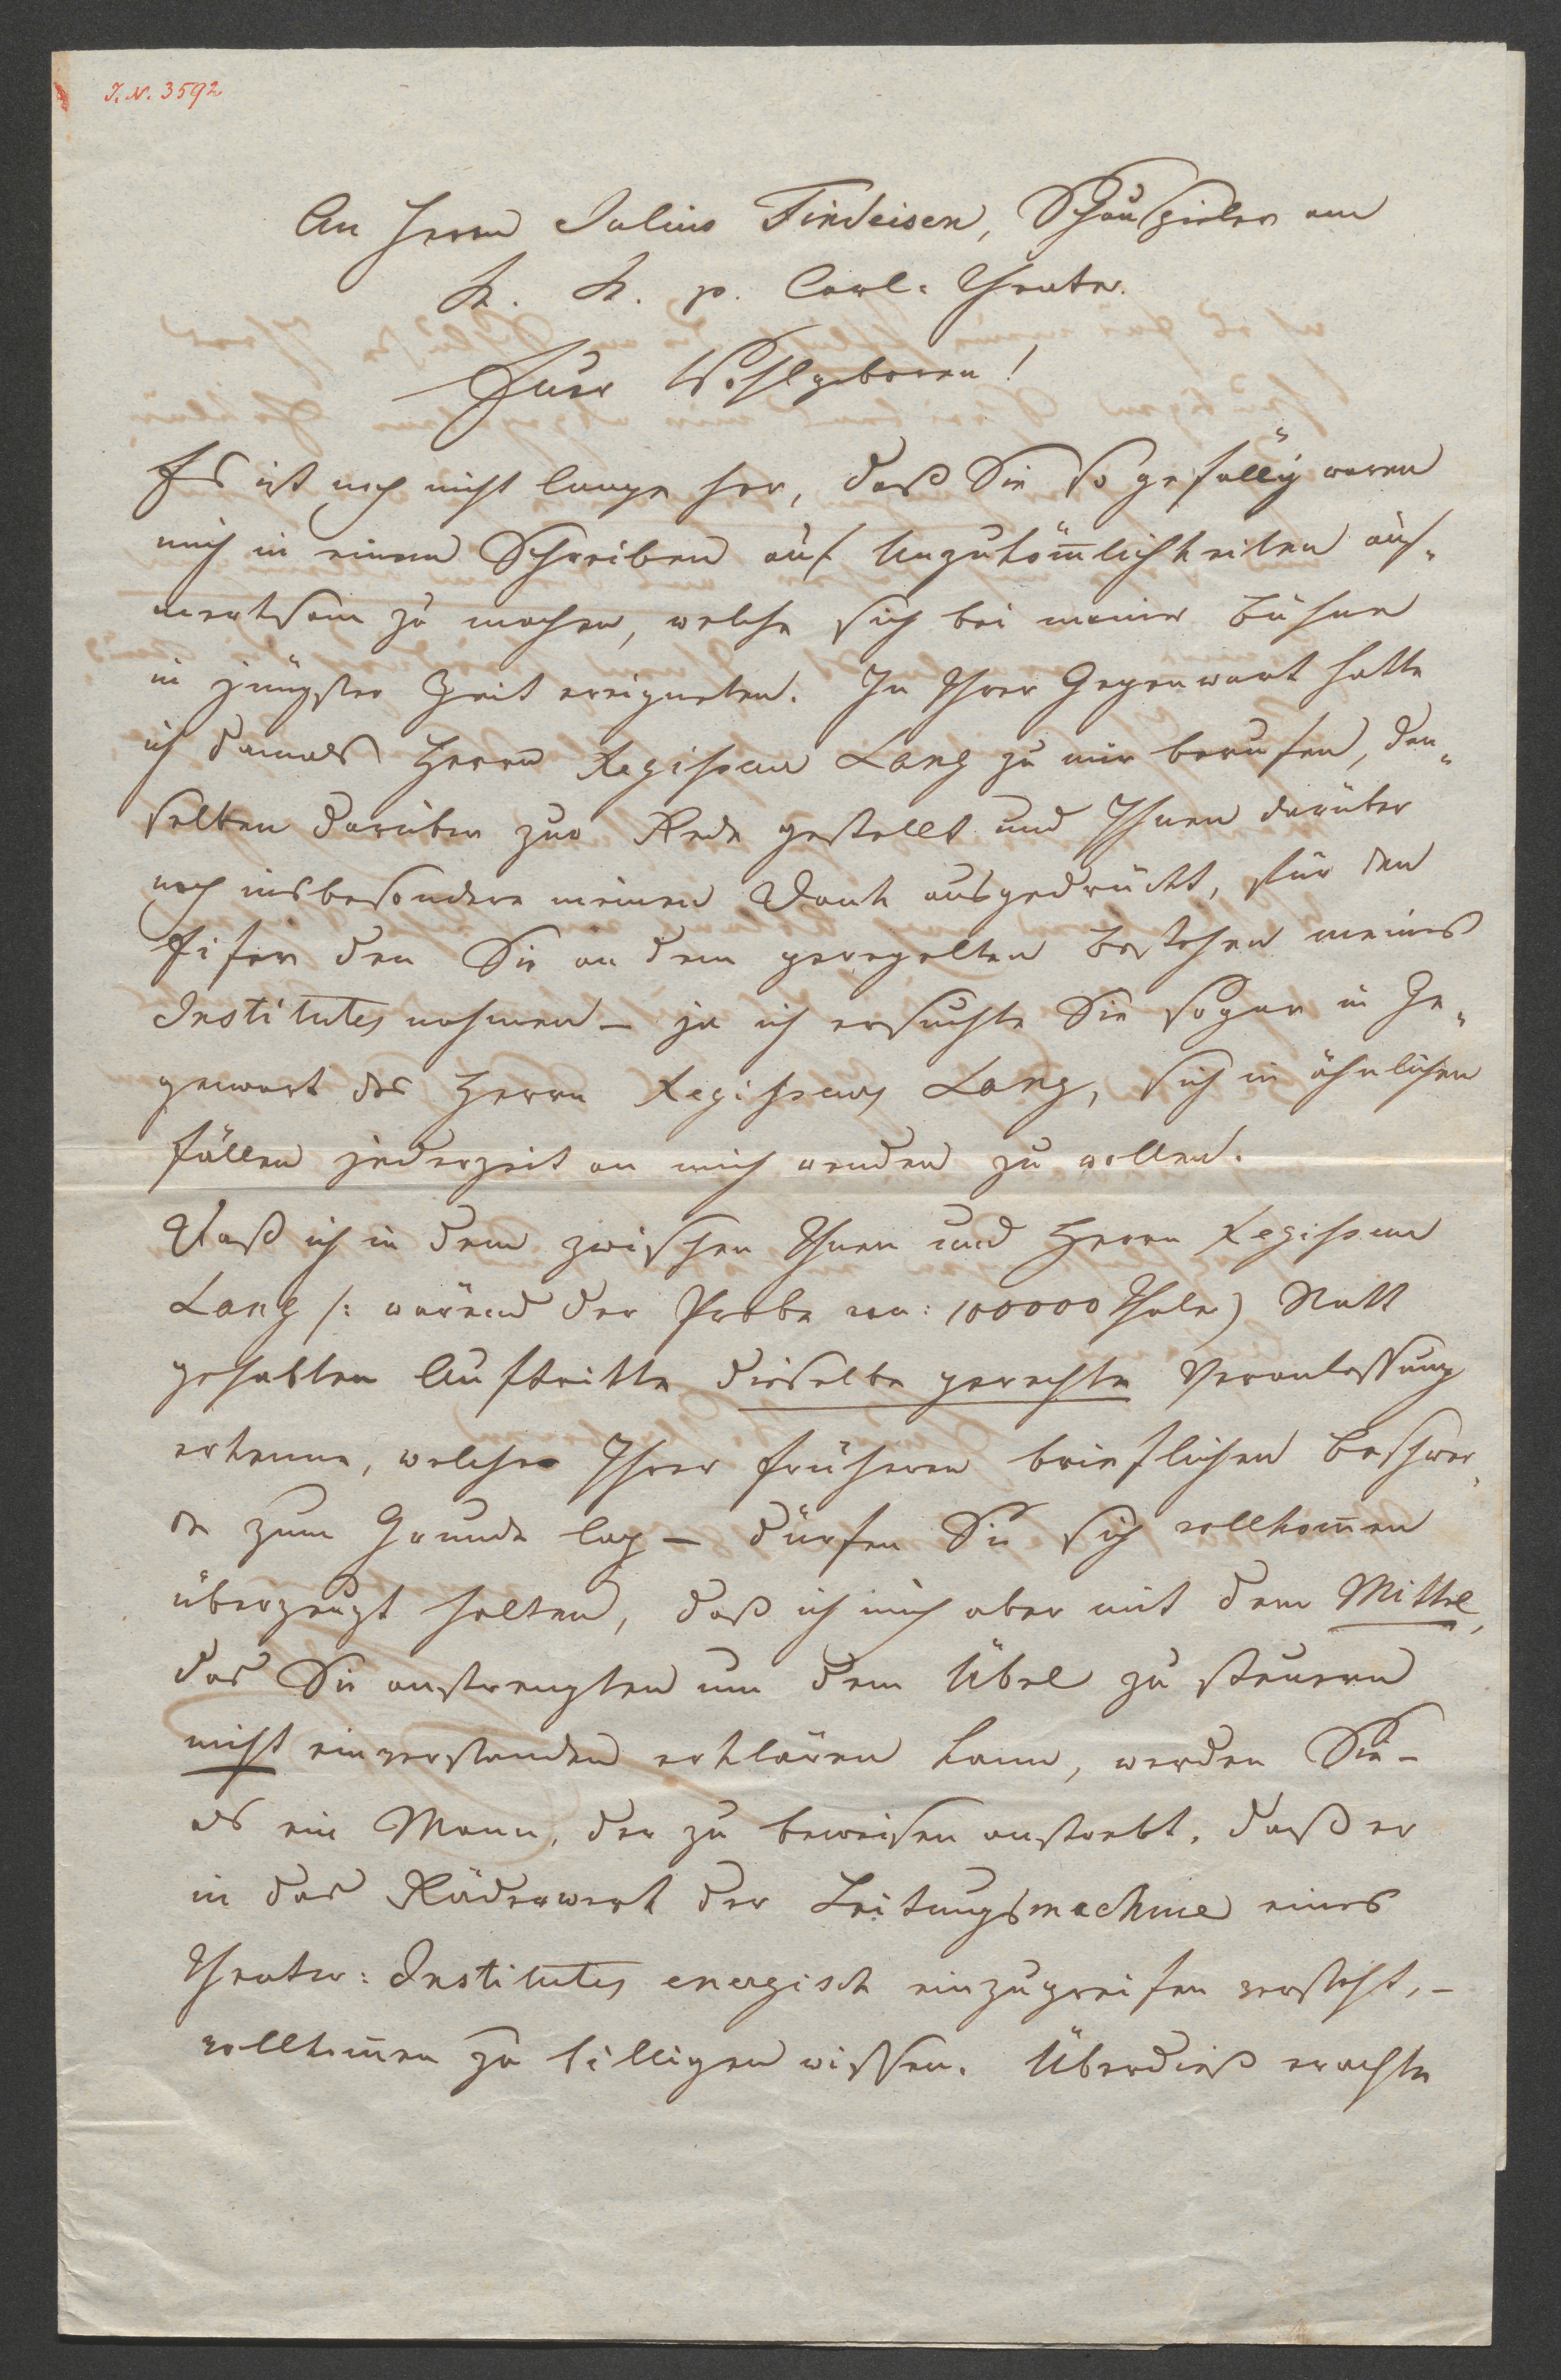 I. N. 3592
An Herrn Julius Findeisen, Schauspieler am
k. k. p. Carl-Theater.
Euer Wohlgeboren!
Es ist noch nicht lange her, daß Sie so gefällig waren
mich in einem Schreiben auf Unzukom̅lichkeiten auf-
merksam zu machen, welche sich bei meiner Bühne
in jüngster Zeit ereigneten. In Ihrer Gegenwart hatte
ich damals Herrn Regisseur Lang zu mir berufen, den-
selben darüber zur Rede gestellt und Ihnen darüber
noch insbesondere meinen Dank ausgedrückt, für den
Eifer den Sie an dem geregelten Bestehen meines
Institutes nahmen – ja ich ersuchte Sie sogar in Ge-
genwart des Herrn Regisseurs Lang, sich in ähnlichen
Fällen jederzeit an mich wenden zu wollen.
Daß ich in dem zwischen Ihnen und Herrn Regisseur
Lang /: wärend der Probe von: 100000 Thaler) Statt
gehabten Auftritte dieselbe gerechte Veranlassung
erkenne, welche Ihrer früheren brieflichen Beschwer-
de zum Grunde lag – dürfen Sie sich vollkom̅en
überzeugt halten, daß ich mich aber mit dem Mittel,
das Sie anstrengten um dem Übel zu steuern
nicht einverstanden erklären kann, werden Sie –
als ein Mann, der zu beweisen anstrebt, daß er
in das Räderwerk der Leitungsmachine eines
Theater-Institutes energisch einzugreifen versteht, –
vollkom̅en zu billigen wissen. Überdieß erachte